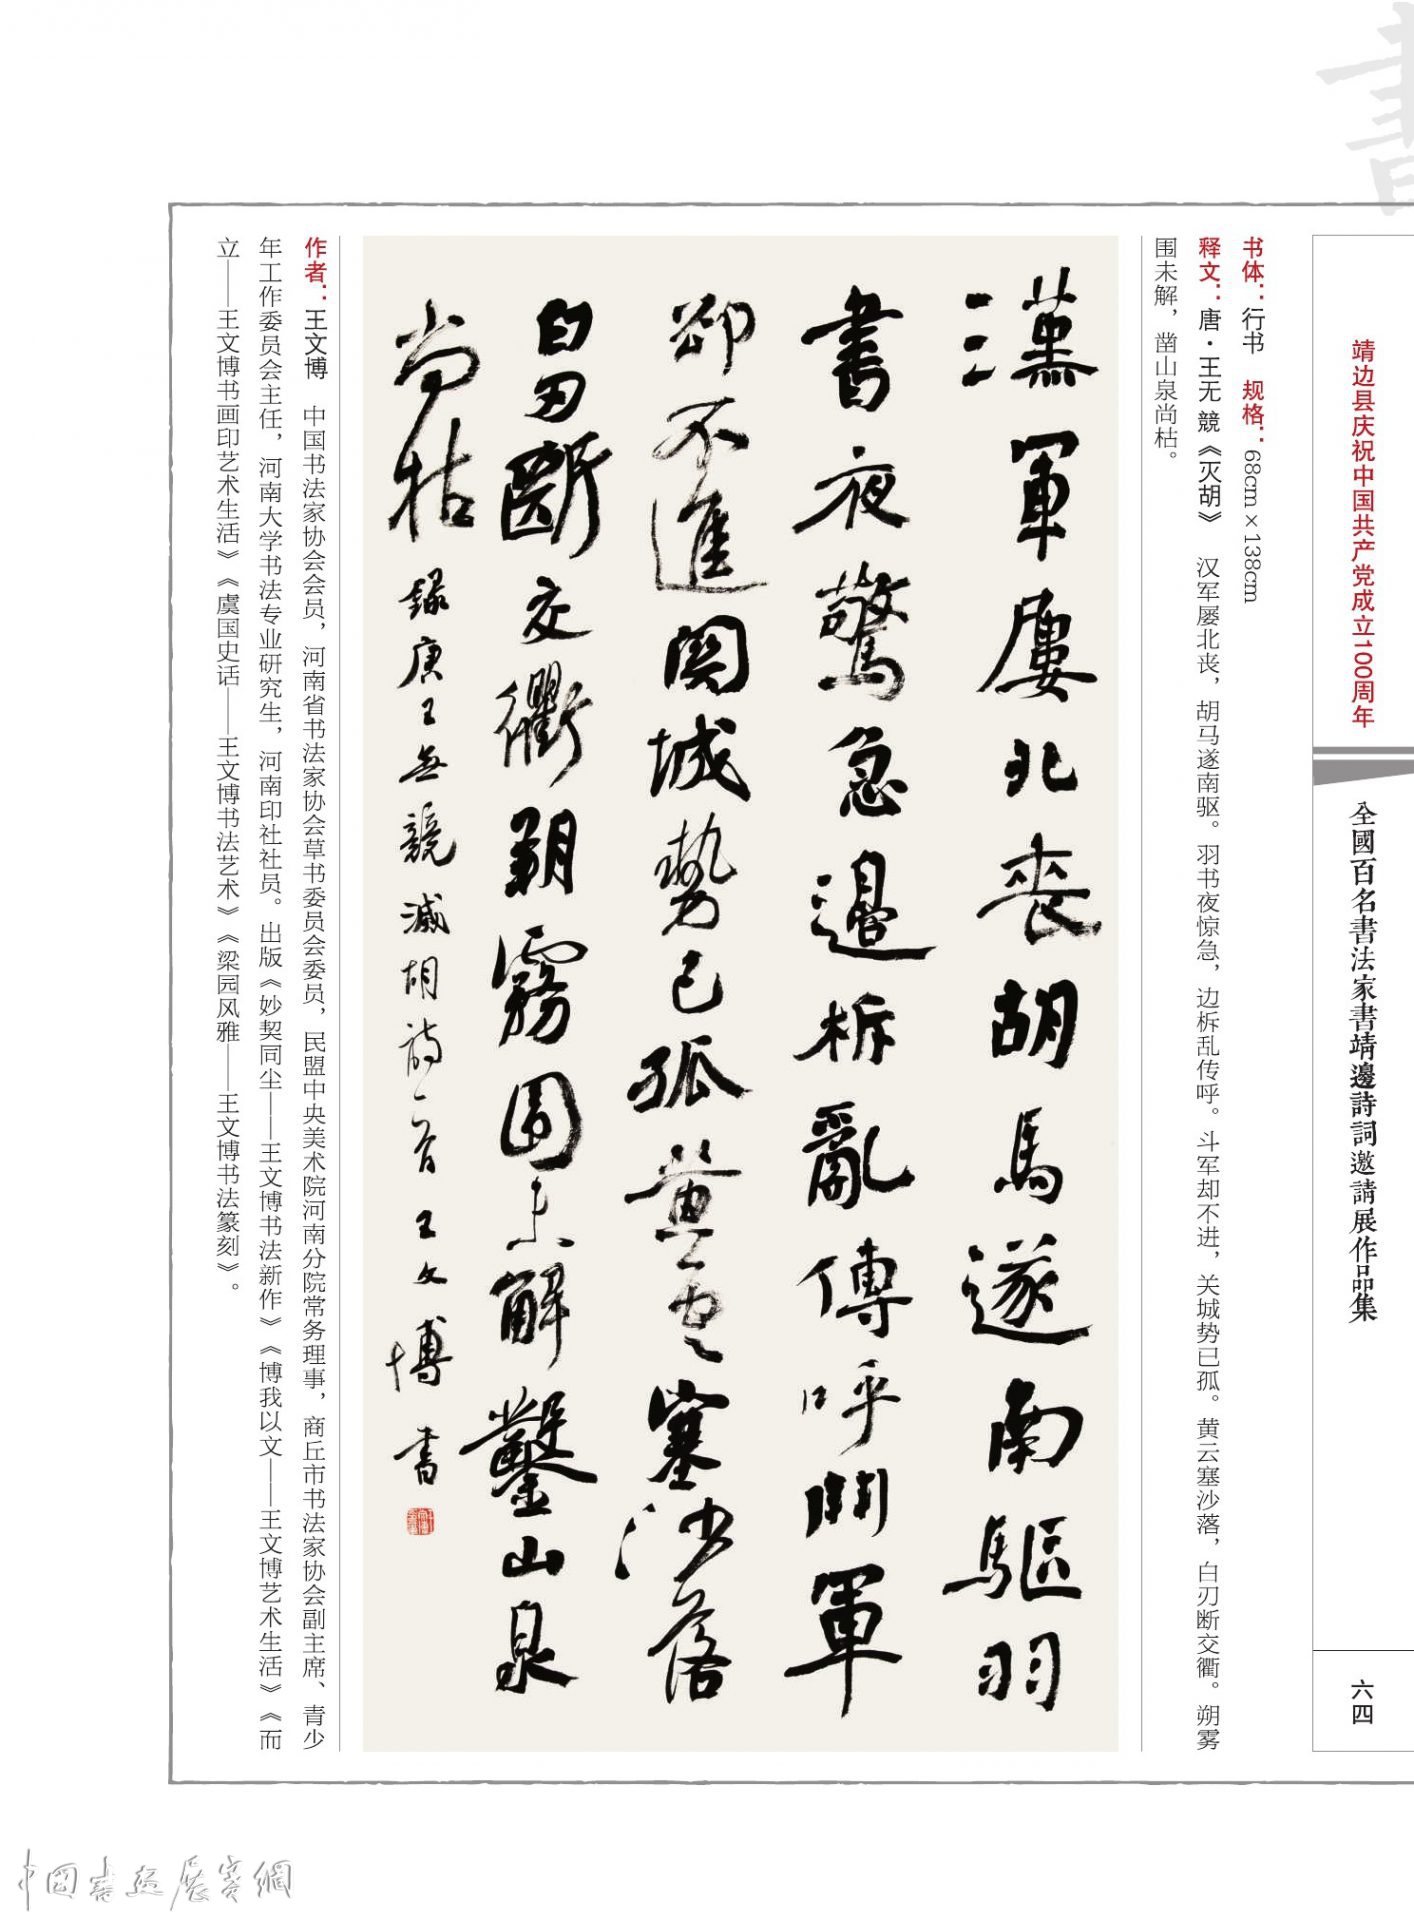 靖边县庆祝中国共产党成立100周年
全國百名書法家書靖邊詩詞邀請展作品集
六四
书体：行书　规格：68cm×138cm
释文：唐·王无競《灭胡》　汉军屡北丧，胡马遂南驱。羽书夜惊急，边柝乱传呼。斗军却不进，关城势已孤。黄云塞沙落，白刃断交衢。朔雾
围未解，凿山泉尚枯。
漢軍屢北喪胡馬遂南驅羽
書夜驚急邊柝亂傳呼鬥軍
卻不進関城勢已孤黄雲塞沙落
白刃斷交衢朔霧圍未解鑿山泉
尚枯 錄唐王無競滅胡詩一首王文博書
作者：王文博　中国书法家协会会员，河南省书法家协会草书委员会委员，民盟中央美术院河南分院常务理事，商丘市书法家协会副主席、青少
年工作委员会主任，河南大学书法专业研究生，河南印社社员。出版《妙契同尘——王文博书法新作》《博我以文——王文博艺术生活》《而
立——王文博书画印艺术生活》《虞国史话——王文博书法艺术》《梁园风雅——王文博书法篆刻》。
中國書画展賽網